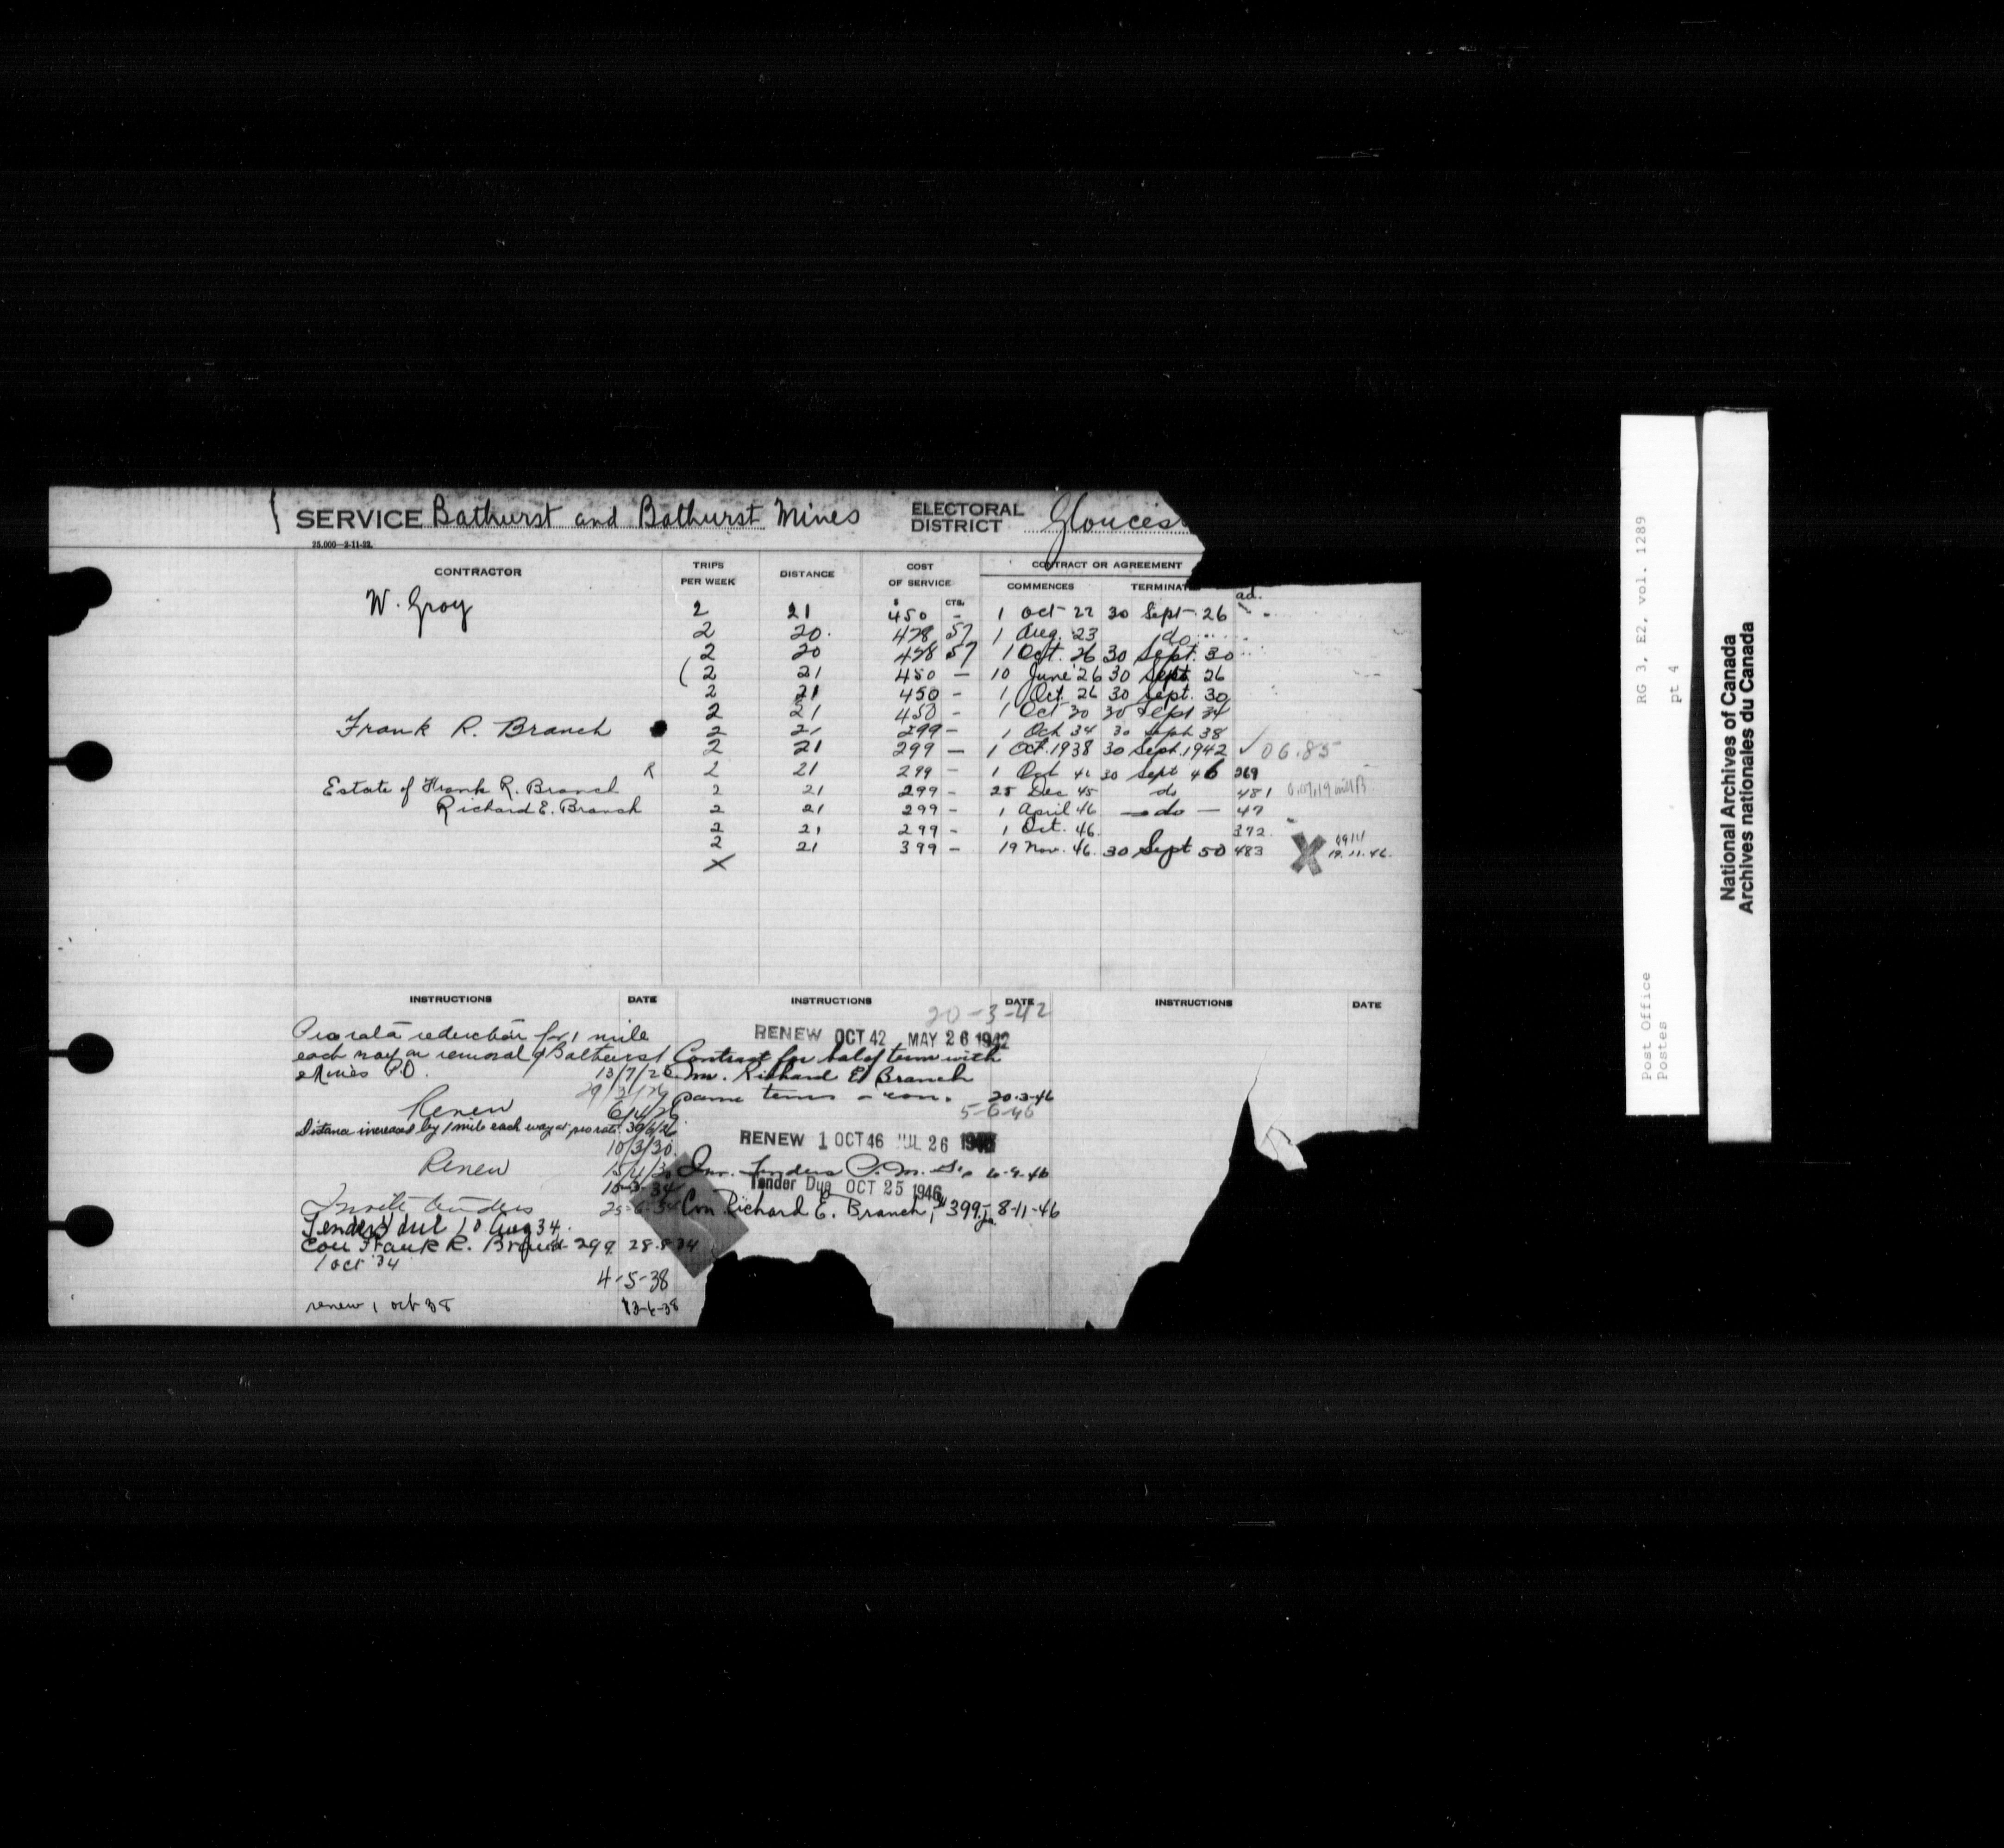 SERVICE Bathurst and Bathurst Mines ELECTORAL DISTRICT Glouces
25,000—2-11-22.
CONTRACTOR TRIPS PER WEEK DISTANCE COST OF SERVICE CONTRACT OR AGREEMENT
COMMENCES TERMINAT
$ CTS. ad.
W. Gray 2 21 450 - 1 Oct 22 30 Sept 26
2 20 428 57 1 Aug. 23 do
2 20 428 57 1 Oct. 26 30 Sept. 30
(2 21 450 — 10 June 26 30 Sept 26
2 21 450 - 1 Oct. 26 30 Sept. 30
2 21 450 - 1 Oct 30 30 Sept 34
Frank R. Branch 2 21 299 - 1 Oct 34 30 Sept 38
2 21 299 — 1 Oct. 1938 30 Sept. 1942 ✓ 06.85
R 2 21 299 - 1 Oct 42 30 Sept 46 269
Estate of Frank R. Branch 2 21 299 - 25 Dec 45 do 481
Richard E. Branch 2 21 299 - 1 April 46 — do — 47
2 21 299 - 1 Oct. 46. 372
2 21 399 - 19 Nov. 46. 30 Sept 50 483 X 19.11.46.
X
INSTRUCTIONS DATE INSTRUCTIONS DATE INSTRUCTIONS DATE
20-3-42
Pro rata reduction for 1 mile
RENEW OCT 42 MAY 26 1942
each way on removal of Bathurst
Contract for bal of term with
Mines P.O. 13/7/23
Mr. Richard E. Branch
same terms 20-3-46
5-6-46
Renew 6/4/26
Distance increased by 1 mile each way at pro rata. 30/6/26
10/3/30.
RENEW 1 OCT 46 JUL 26
Renew
Inv. Tenders P.M. 6-9-46
15-3-34
Tender Due OCT 25 1946
Invite tenders 25-6-34
Con Richard E. Branch, $399.- 8-11-46
Tenders due 10 Aug 34.
Con Frank R. Branch 299 28-8-34
1 Oct 34
4-5-38
renew 1 oct 38 13-6-38
Post Office RG 3, E2, vol. 1289
Postes pt 4
National Archives of Canada
Archives nationales du Canada